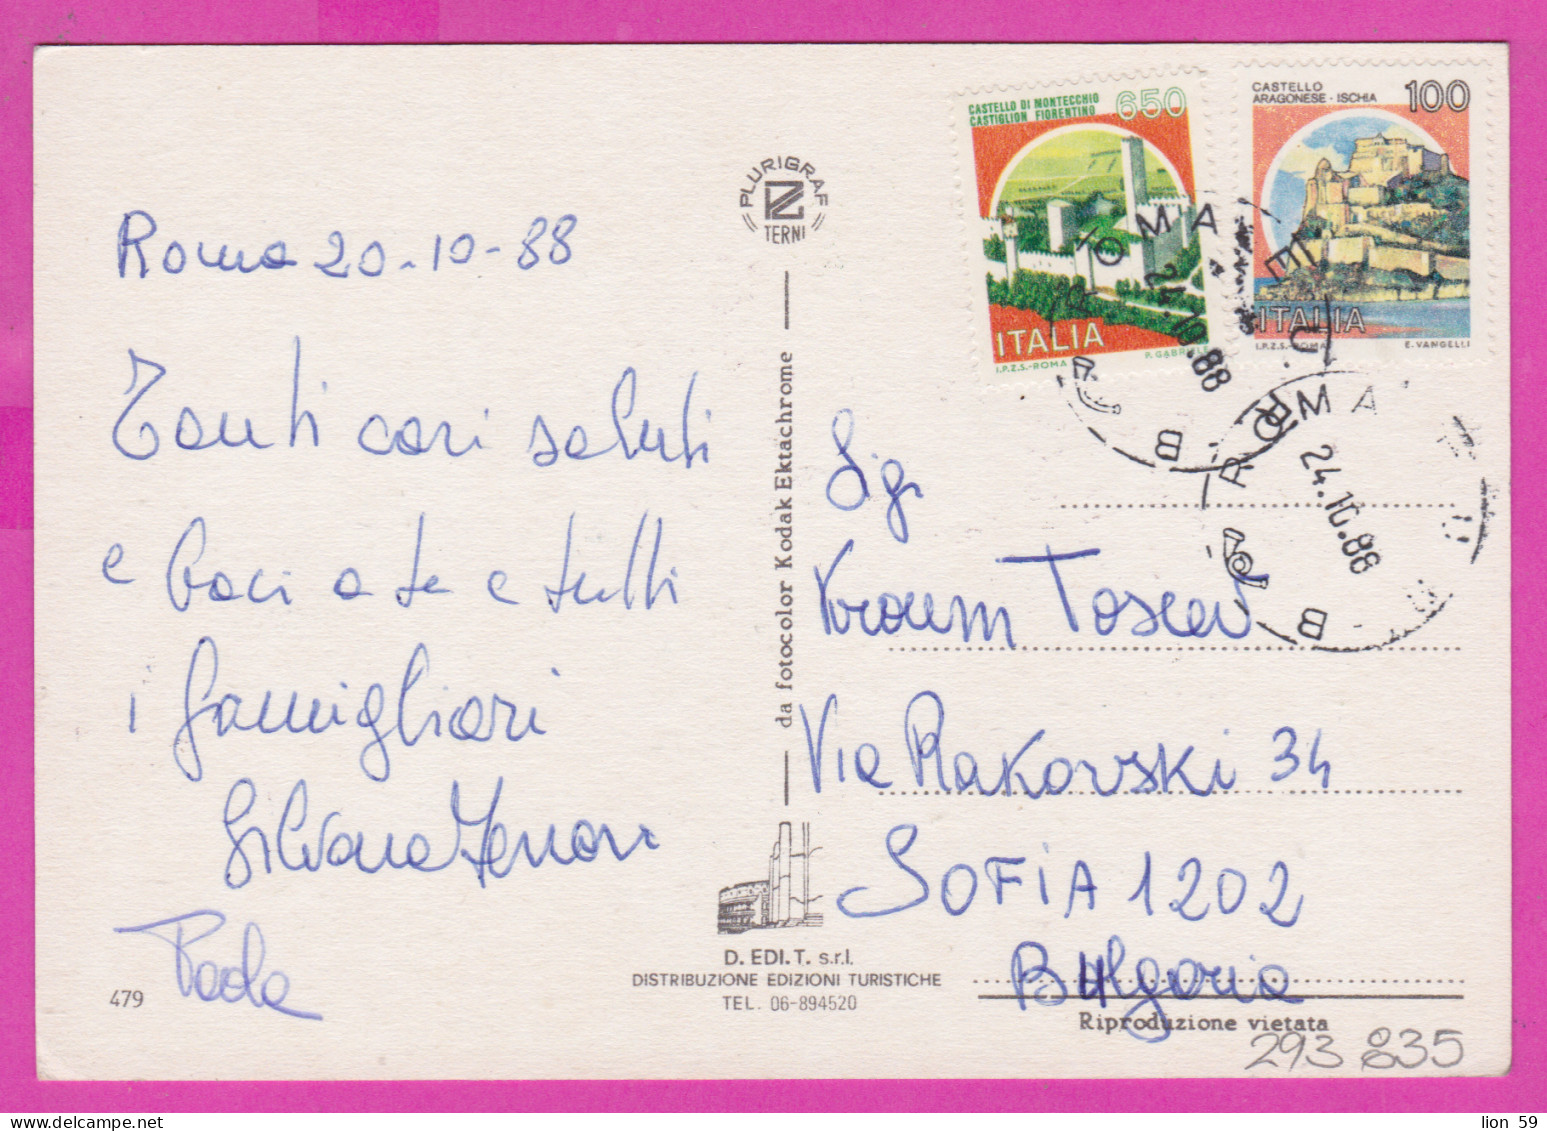 Roma 20-10-88
Tanti cari saluti
e baci a te e tutti
i famigliari
Silvana
Paola
479
PLURIGRAF
TERNI
da fotocolor Kodak Ektachrome
D. EDI.T. s.r.l.
DISTRIBUZIONE EDIZIONI TURISTICHE
TEL. 06-894520
CASTELLO DI MONTECCHIO
CASTIGLION FIORENTINO
650
ITALIA
I.P.Z.S.-ROMA
P. GABRIELE
CASTELLO
ARAGONESE - ISCHIA
100
ITALIA
I.P.Z.S.-ROMA
E. VANGELLI
ROMA
24.10.88
ROMA
24.10.88
Sig
Kroum Toscev
Via Rakovski 34
SOFIA 1202
Bulgaria
Riproduzione vietata
293 835
lion 59